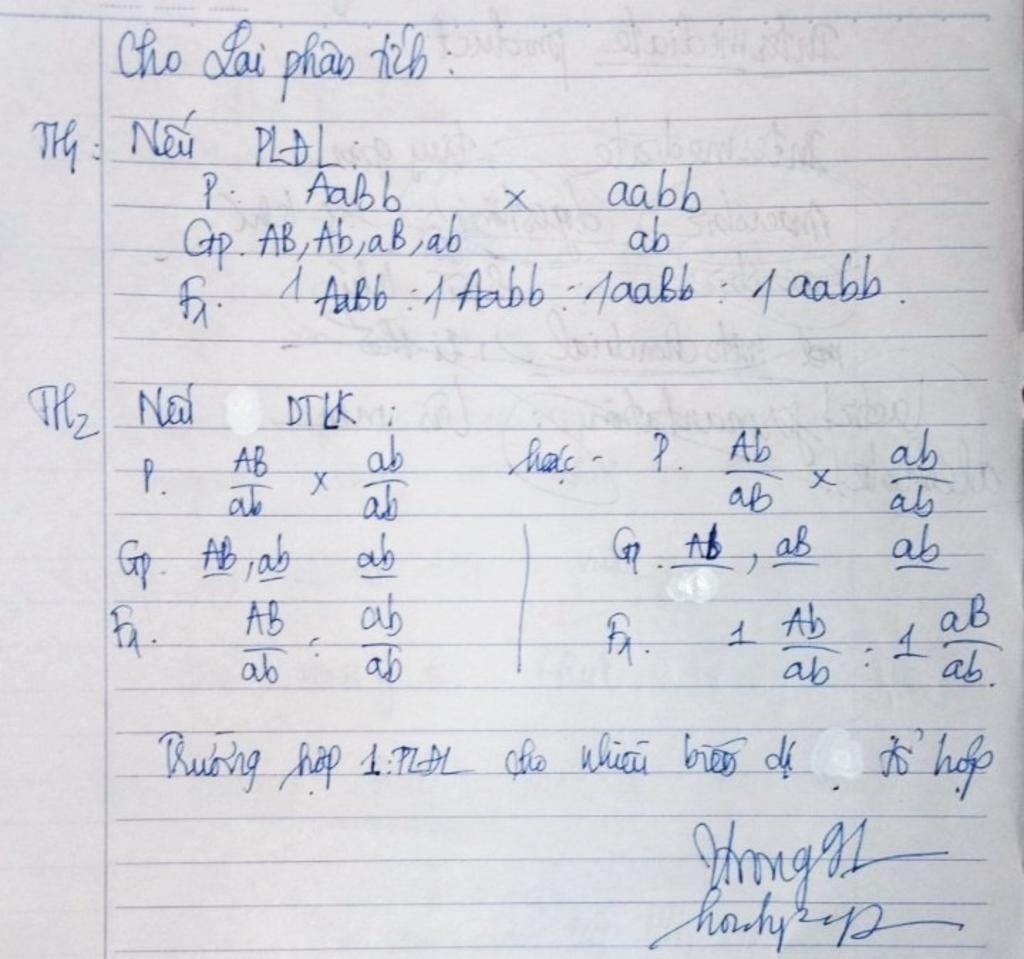 Cho Lai phân tích:
TH1: Nếu PLĐL
P: AaBb x aabb
Gp. AB, Ab, aB, ab ab
F1. 1 AaBb : 1 Aabb : 1 aaBb : 1 aabb.
TH2 Nếu DTLK:
P. AB/ab x ab/ab hoặc - P. Ab/aB x ab/ab
Gp. AB, ab ab Gp. Ab, aB ab
F1. AB/ab : ab/ab F1. 1 Ab/ab : 1 aB/ab.
Trường hợp 1: PLĐL cho nhiều biến dị tổ hợp